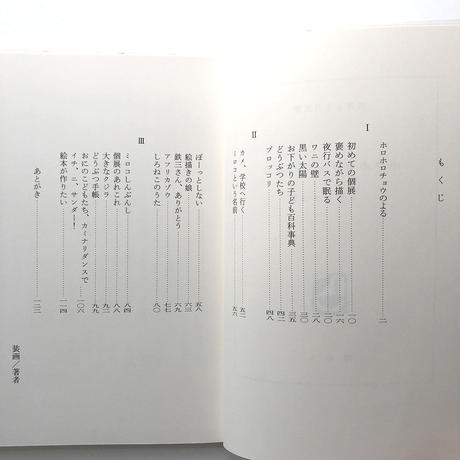 もくじ
ホロホロチョウのよる 二
Ⅰ
初めての個展 一〇
褒めながら描く 一六
夜行バスで眠る 二〇
ワニの壁 二八
黒い太陽 三一
お下がりの子ども百科事典 三五
どうぶつたち 四二
ブロッコリ 四八
Ⅱ
カメ、学校へ行く 五二
ミロコという名前 五六
ぼーっとしない 五八
絵描きの娘 六三
鉄三さん、ありがとう 六九
アフリカゾウ 七七
しろねこのうた 八〇
Ⅲ
ミロコしんぶんし 八四
個展のあれこれ 八八
大きなクジラ 九二
どうぶつ手帳 九九
おにのこどもたち、カミナリダンスで
イチ、ニ、サンダー! 一〇六
絵本が作りたい 一一四
あとがき 一二三
装画/著者